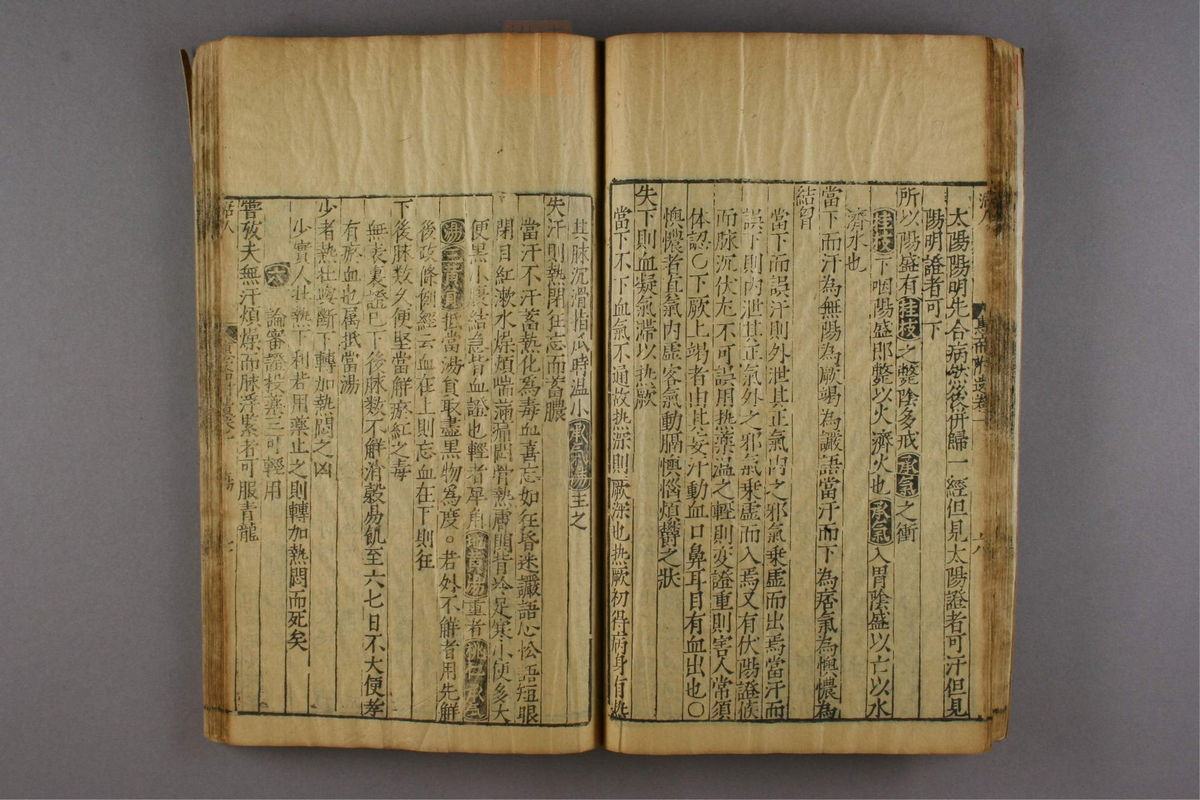 太陽陽明先合病然後併歸一經但見太陽證者可汗但見
陽明證者可下
所以陽盛有桂枝之斃陰多戒承氣之衝
桂枝下咽陽盛即斃以火濟火也承氣入胃陰盛以亡以水
濟水也
當下而汗為無陽為厥竭為讝語當汗而下為痞氣為懊憹為
結胷
當下而誤汗則外泄其正氣胃之邪氣乗虚而出焉當汗而
誤下則内泄其正氣外之邪氣乗虚而入焉又有伏陽證候
而脉沉伏尤不可誤用热藥温之輕則変證重則害人常須
体認〇下厥上竭者由其妄汗動血口鼻耳目有血出也〇
懊憹者真氣内虚客氣動膈懊惱煩欝之狀
失下則血凝氣滞以热厥
當下不下血氣不通故热深則厥深也热厥初得病身有热
其脉沉滑指爪時温小承氣湯主之
失汗則熱閉狂忘而蓄膿
當汗不汗蓄熱化為毒血喜忘如狂昏迷讝語心忪語短眼
閉目紅漱水燥煩喘滿骨熱膚間背冷足寒小便多大
便黒小腹結急皆血證也輕者犀角地黄湯重者桃仁承氣
湯三黄丸抵當湯負取盡黒物為度。若外不觧者用先觧
後攻條例經云血在上則忘血在下則狂
下後脉数久便堅當觧瘀紅之毒
無表裏證已下後脉数不觧消穀易飢至六七日不大便者
有瘀血也属抵當湯
少者熱壮愛断下轉加熱悶之凶
少實人壮熱下利若用藥止之則轉加熱悶而死矣
六 論審證投藥三可輕用
嘗攷夫無汗煩燥而脉浮緊者可服青龍